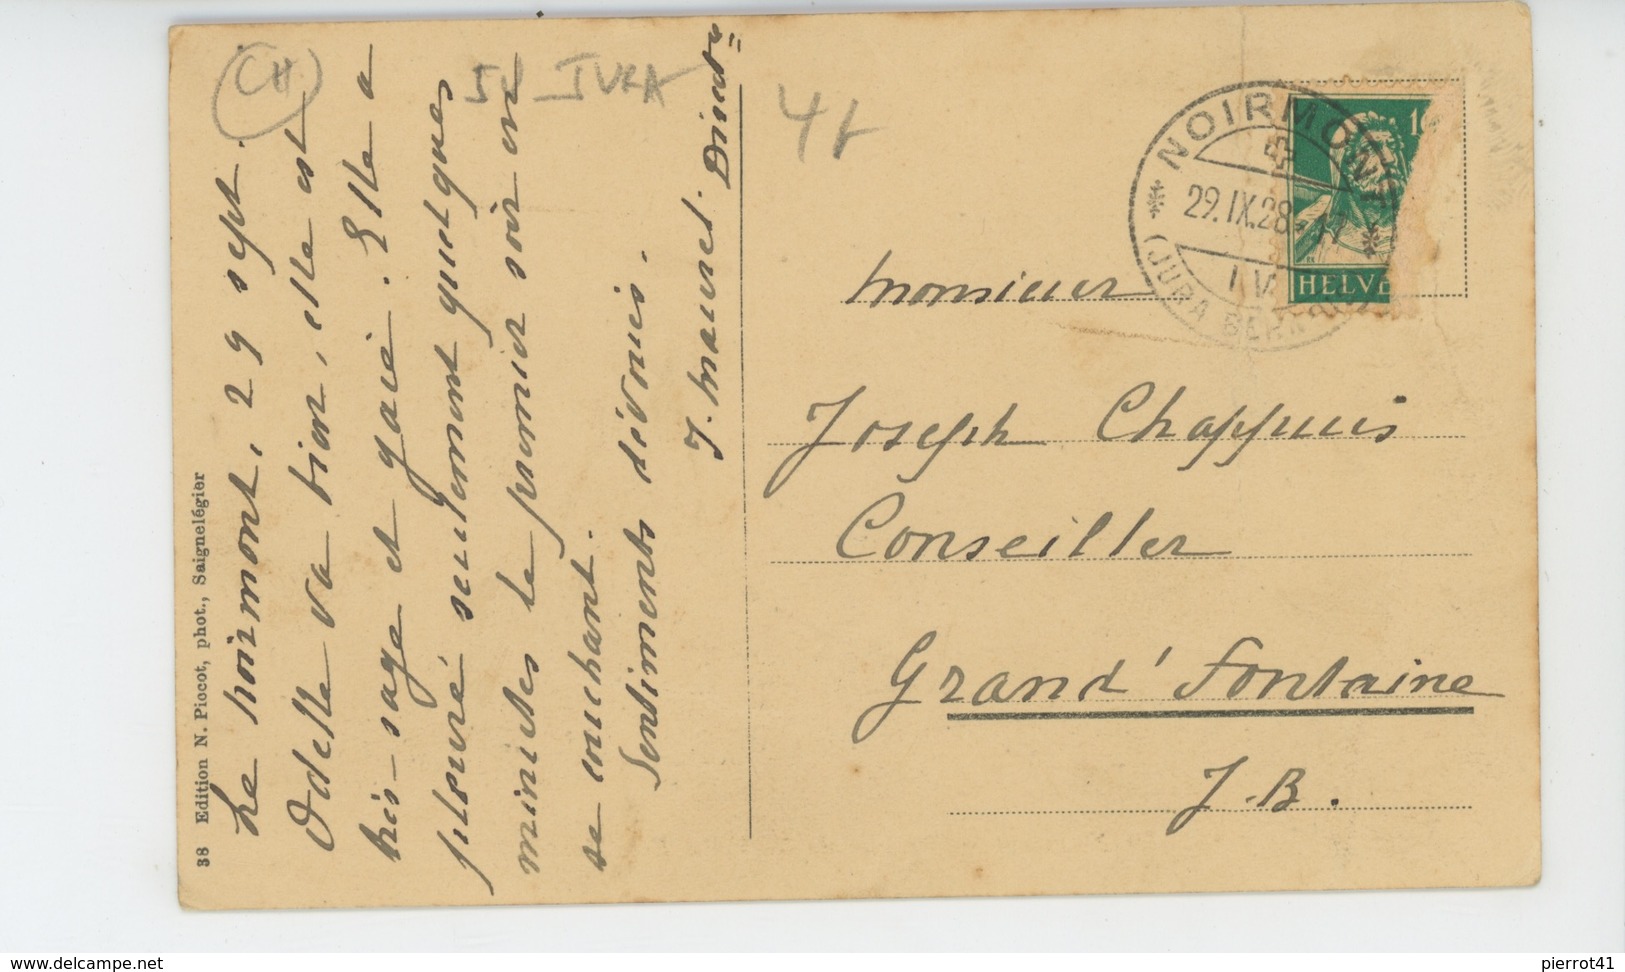 CH
JURA
4f
Le Noirmont, 29 sept.
Odette va bien, elle est
très-sage et gaie. Elle a
pleuré seulement quelques
minutes le premier soir en
se couchant.
Sentiments dévoués.
J. Mauvel Direct
38 Edition N. Piocot, phot., Saignelégier
NOIRMONT
29.IX.28.-17
IV
(JURA BERNOIS)
10
HELVE
Monsieur
Joseph Chappuis
Conseiller
Grand'Fontaine
J.B.
www.delcampe.net
pierrot41